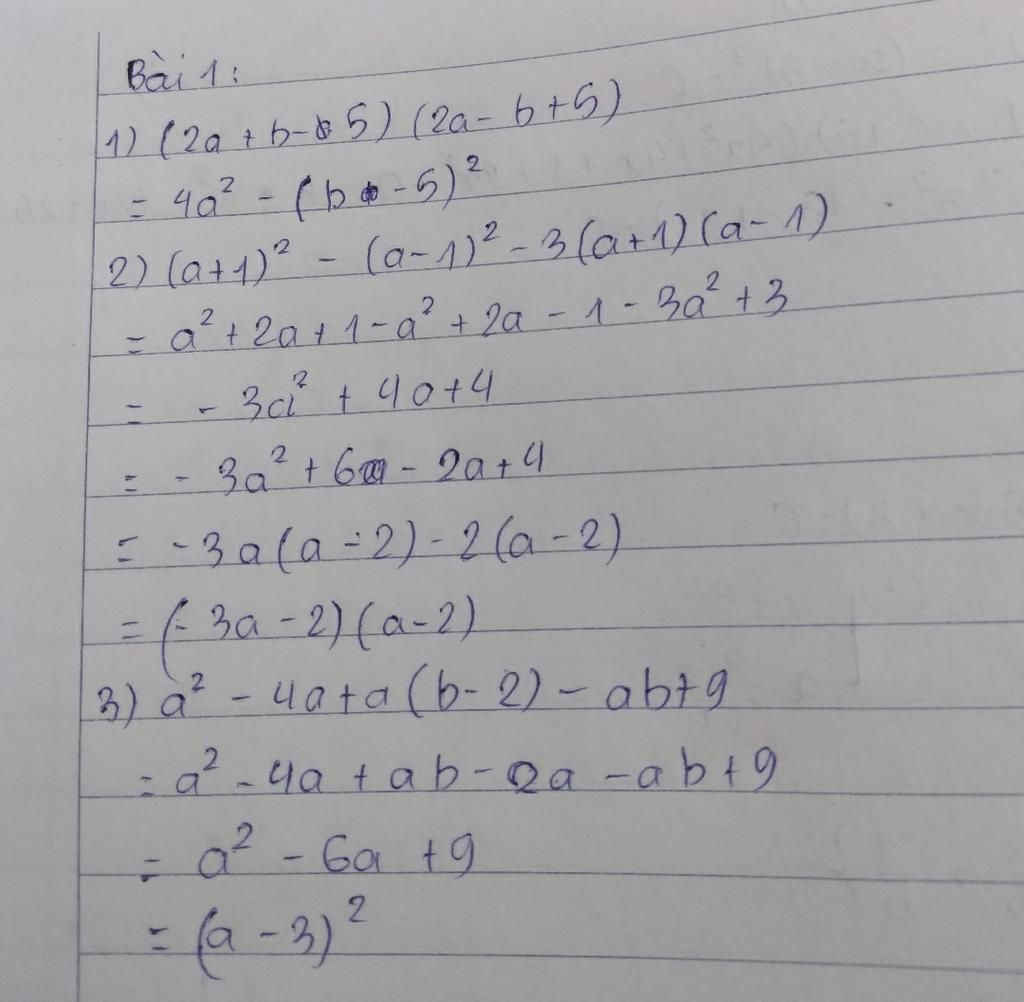 Bài 1:
1) (2a + b - 5) (2a - b + 5)
= 4a² - (b - 5)²
2) (a+1)² - (a-1)² - 3(a+1)(a-1)
= a² + 2a + 1 - a² + 2a - 1 - 3a² + 3
= - 3a² + 4a + 4
= - 3a² + 6a - 2a + 4
= - 3a(a - 2) - 2(a - 2)
= (- 3a - 2)(a - 2)
3) a² - 4a + a(b - 2) - ab + 9
= a² - 4a + ab - 2a - ab + 9
= a² - 6a + 9
= (a - 3)²